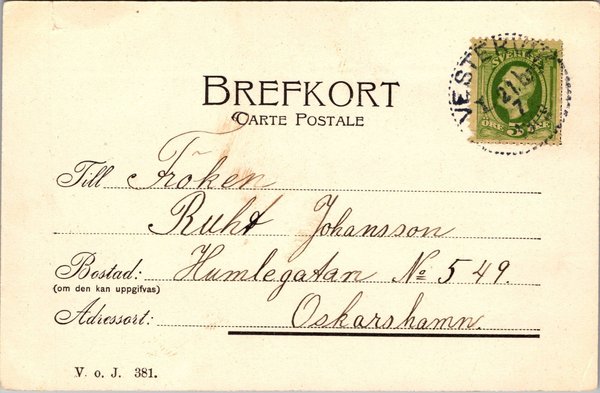 BREFKORT
CARTE POSTALE
VESTERVIK
21.6
7
SVERIGE
ÖRE 5 ÖRE
Till Fröken
Ruht Johansson
Bostad: Humlegatan No 549.
(om den kan uppgifvas)
Adressort: Oskarshamn.
V. o. J. 381.